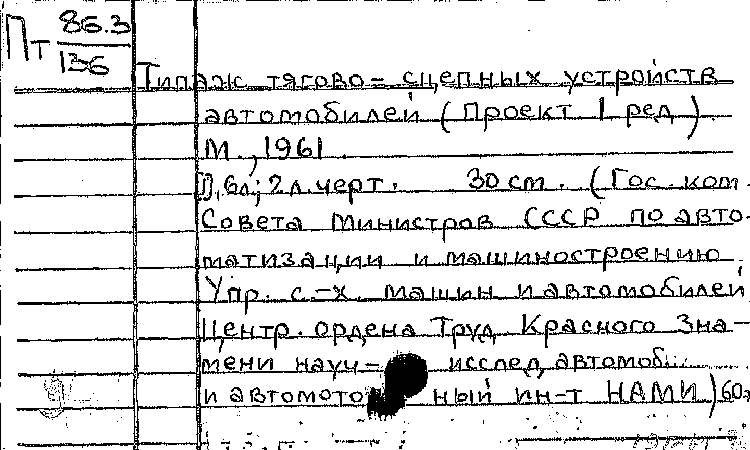 Пт 86.3
136
Типаж тягово-сцепных устройств
автомобилей (Проект 1 ред)
М., 1961
6л; 2 л. черт. 30 cm. (Гос. ком.
Совета Министров СССР по авто-
матизации и машиностроению
Упр. с.-х. машин и автомобилей
Центр. ордена Труд Красного Зна-
мени науч- исслед, автомоб
и автомото ный ин-т НАМИ) 60э